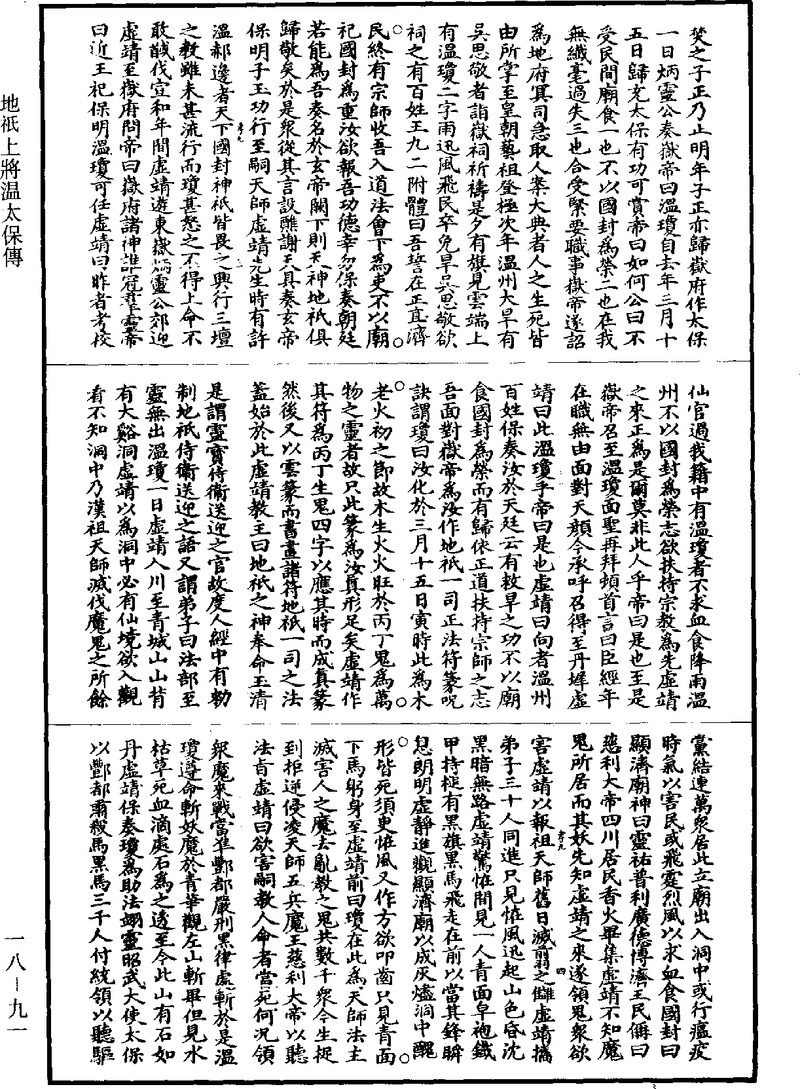 焚之子正乃止明年子正亦歸嶽府作太保
一日炳靈公奏嶽帝曰溫瓊自去年三月十
五日歸充太保有功可賞帝曰如何公曰不
受民間廟食一也不以國封為榮二也在我
無纖毫過失三也合受緊要職事嶽帝遂詔
為地府冥司急取人案大典者人之生死皆
由所掌至皇朝藝祖登極次年溫州大旱有
吳思敬者詣嶽祠祈禱是夕有旗見雲端上
有溫瓊二字雨迅風飛民卒免旱吳思敬欲
祠之有百姓王九二附體曰吾誓在正直濟
民終有宗師收吾入道法會下為吏不以廟
祀國封為重汝欲報吾功德幸勿保奏朝廷
若能為吾奏名於玄帝闕下則天神地祇俱
歸敬矣於是眾從其言設醮謝天具奏玄帝
保明子玉功行至嗣天師虛靖先生時有許
溫郝邊者天下國封神祇皆畏之興行三壇
之教雖未甚流行而瓊甚怒之不得上命不
敢誅伐宣和年間虛靖遊東嶽炳靈公郊迎
虛靖至嶽府問帝曰嶽府諸神誰冠羣靈帝
曰近王祀保明溫瓊可任虛靖曰昨者考校
仙官過我籍中有溫瓊者不求血食降雨溫
州不以國封為榮志欲扶持宗教為先虛靖
之來正為是爾莫非此人乎帝曰是也至是
嶽帝召至溫瓊面聖再拜頓首言曰臣經年
在職無由面對天顏今承呼召得至丹墀虛
靖曰此溫瓊乎帝曰是也虛靖曰向者溫州
百姓保奏汝於天廷云有救旱之功不以廟
食國封為榮而有歸依正道扶持宗師之志
吾面對嶽帝為汝作地祇一司正法符篆呪
訣謂瓊曰汝化於三月十五日寅時此為木
老火初之節故木生火火旺於丙丁鬼為萬
物之靈者故只此篆為汝真形足矣虛靖作
其符為丙丁生鬼四字以應其時而成真篆
然後又以雲篆而書畫諸符地祇一司之法
蓋始於此虛靖教主曰地祇之神奉命玉清
是謂靈寶侍衛送迎之官故度人經中有勑
制地祇侍衛送迎之語又謂弟子曰法部至
靈無出溫瓊一日虛靖入川至青城山山背
有大谿洞虛靖以為洞中必有仙境欲入觀
看不知洞中乃漢祖天師滅伐魔鬼之所餘
黨結連萬眾居此立廟出入洞中或行瘟疫
時氣以害民或飛霆烈風以求血食國封曰
顯濟廟神曰靈祐普利廣德博濟王民僭曰
慈利大帝四川居民香火畢集虛靖不知魔
鬼所居而其妖先知虛靖之來遂領鬼眾欲
害虛靖以報祖天師舊日滅翦之讎虛靖攜
弟子三十人同進只見怪風迅起山色昏沈
黑暗無路虛靖驚怪間見一人青面皁袍鐵
甲持槌有黑旗黑馬飛走在前以當其鋒瞬
息朗明虛靜進觀顯濟廟以成灰燼洞中醜
形皆死須史怪風又作方欲叩齒只見青面
下馬躬身至虛靖前曰瓊在此為天師法主
滅害人之魔去亂教之鬼共數千眾今生捉
到拒逆侵凌天師五兵魔王慈利大帝以聽
法旨虛靖曰欲害嗣教人命者當死何況領
眾魔來戰當準酆都嚴刑黑律處斬於是溫
瓊遵命斬妖魔於青華觀左山斬畢但見水
枯草死血滴處石為之透至今此山有石如
丹虛靖保奏瓊為助法翊靈昭武大使太保
以酆都肅殺馬黑馬三千人付統領以聽驅
地祇上將溫太保傳
一八－九一